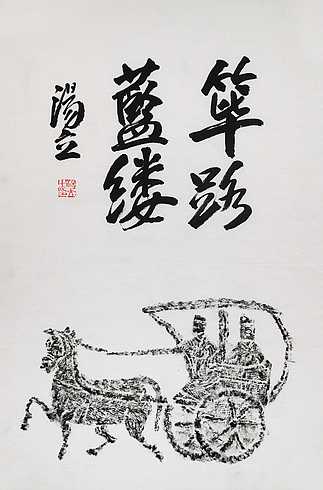 筚路
蓝缕
汤立